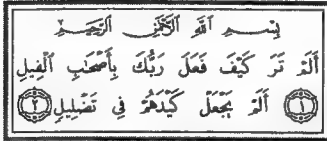 بِسْمِ اللَّهِ الرَّحْمَٰنِ الرَّحِيمِ
أَلَمْ تَرَ كَيْفَ فَعَلَ رَبُّكَ بِأَصْحَابِ الْفِيلِ
١ أَلَمْ يَجْعَلْ كَيْدَهُمْ فِي تَضْلِيلٍ ٢